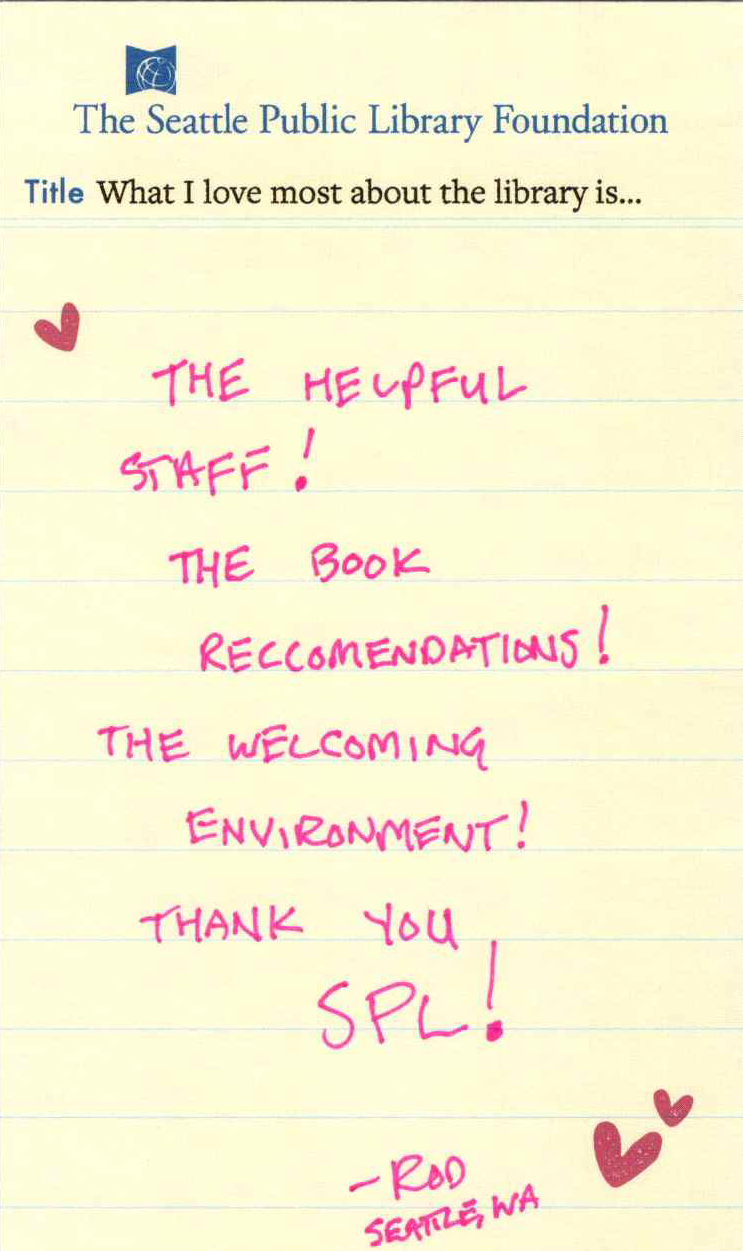 The Seattle Public Library Foundation
Title What I love most about the library is...
THE HELPFUL
STAFF!
THE BOOK
RECCOMENDATIONS!
THE WELCOMING
ENVIRONMENT!
THANK YOU
SPL!
-ROD
SEATTLE, WA